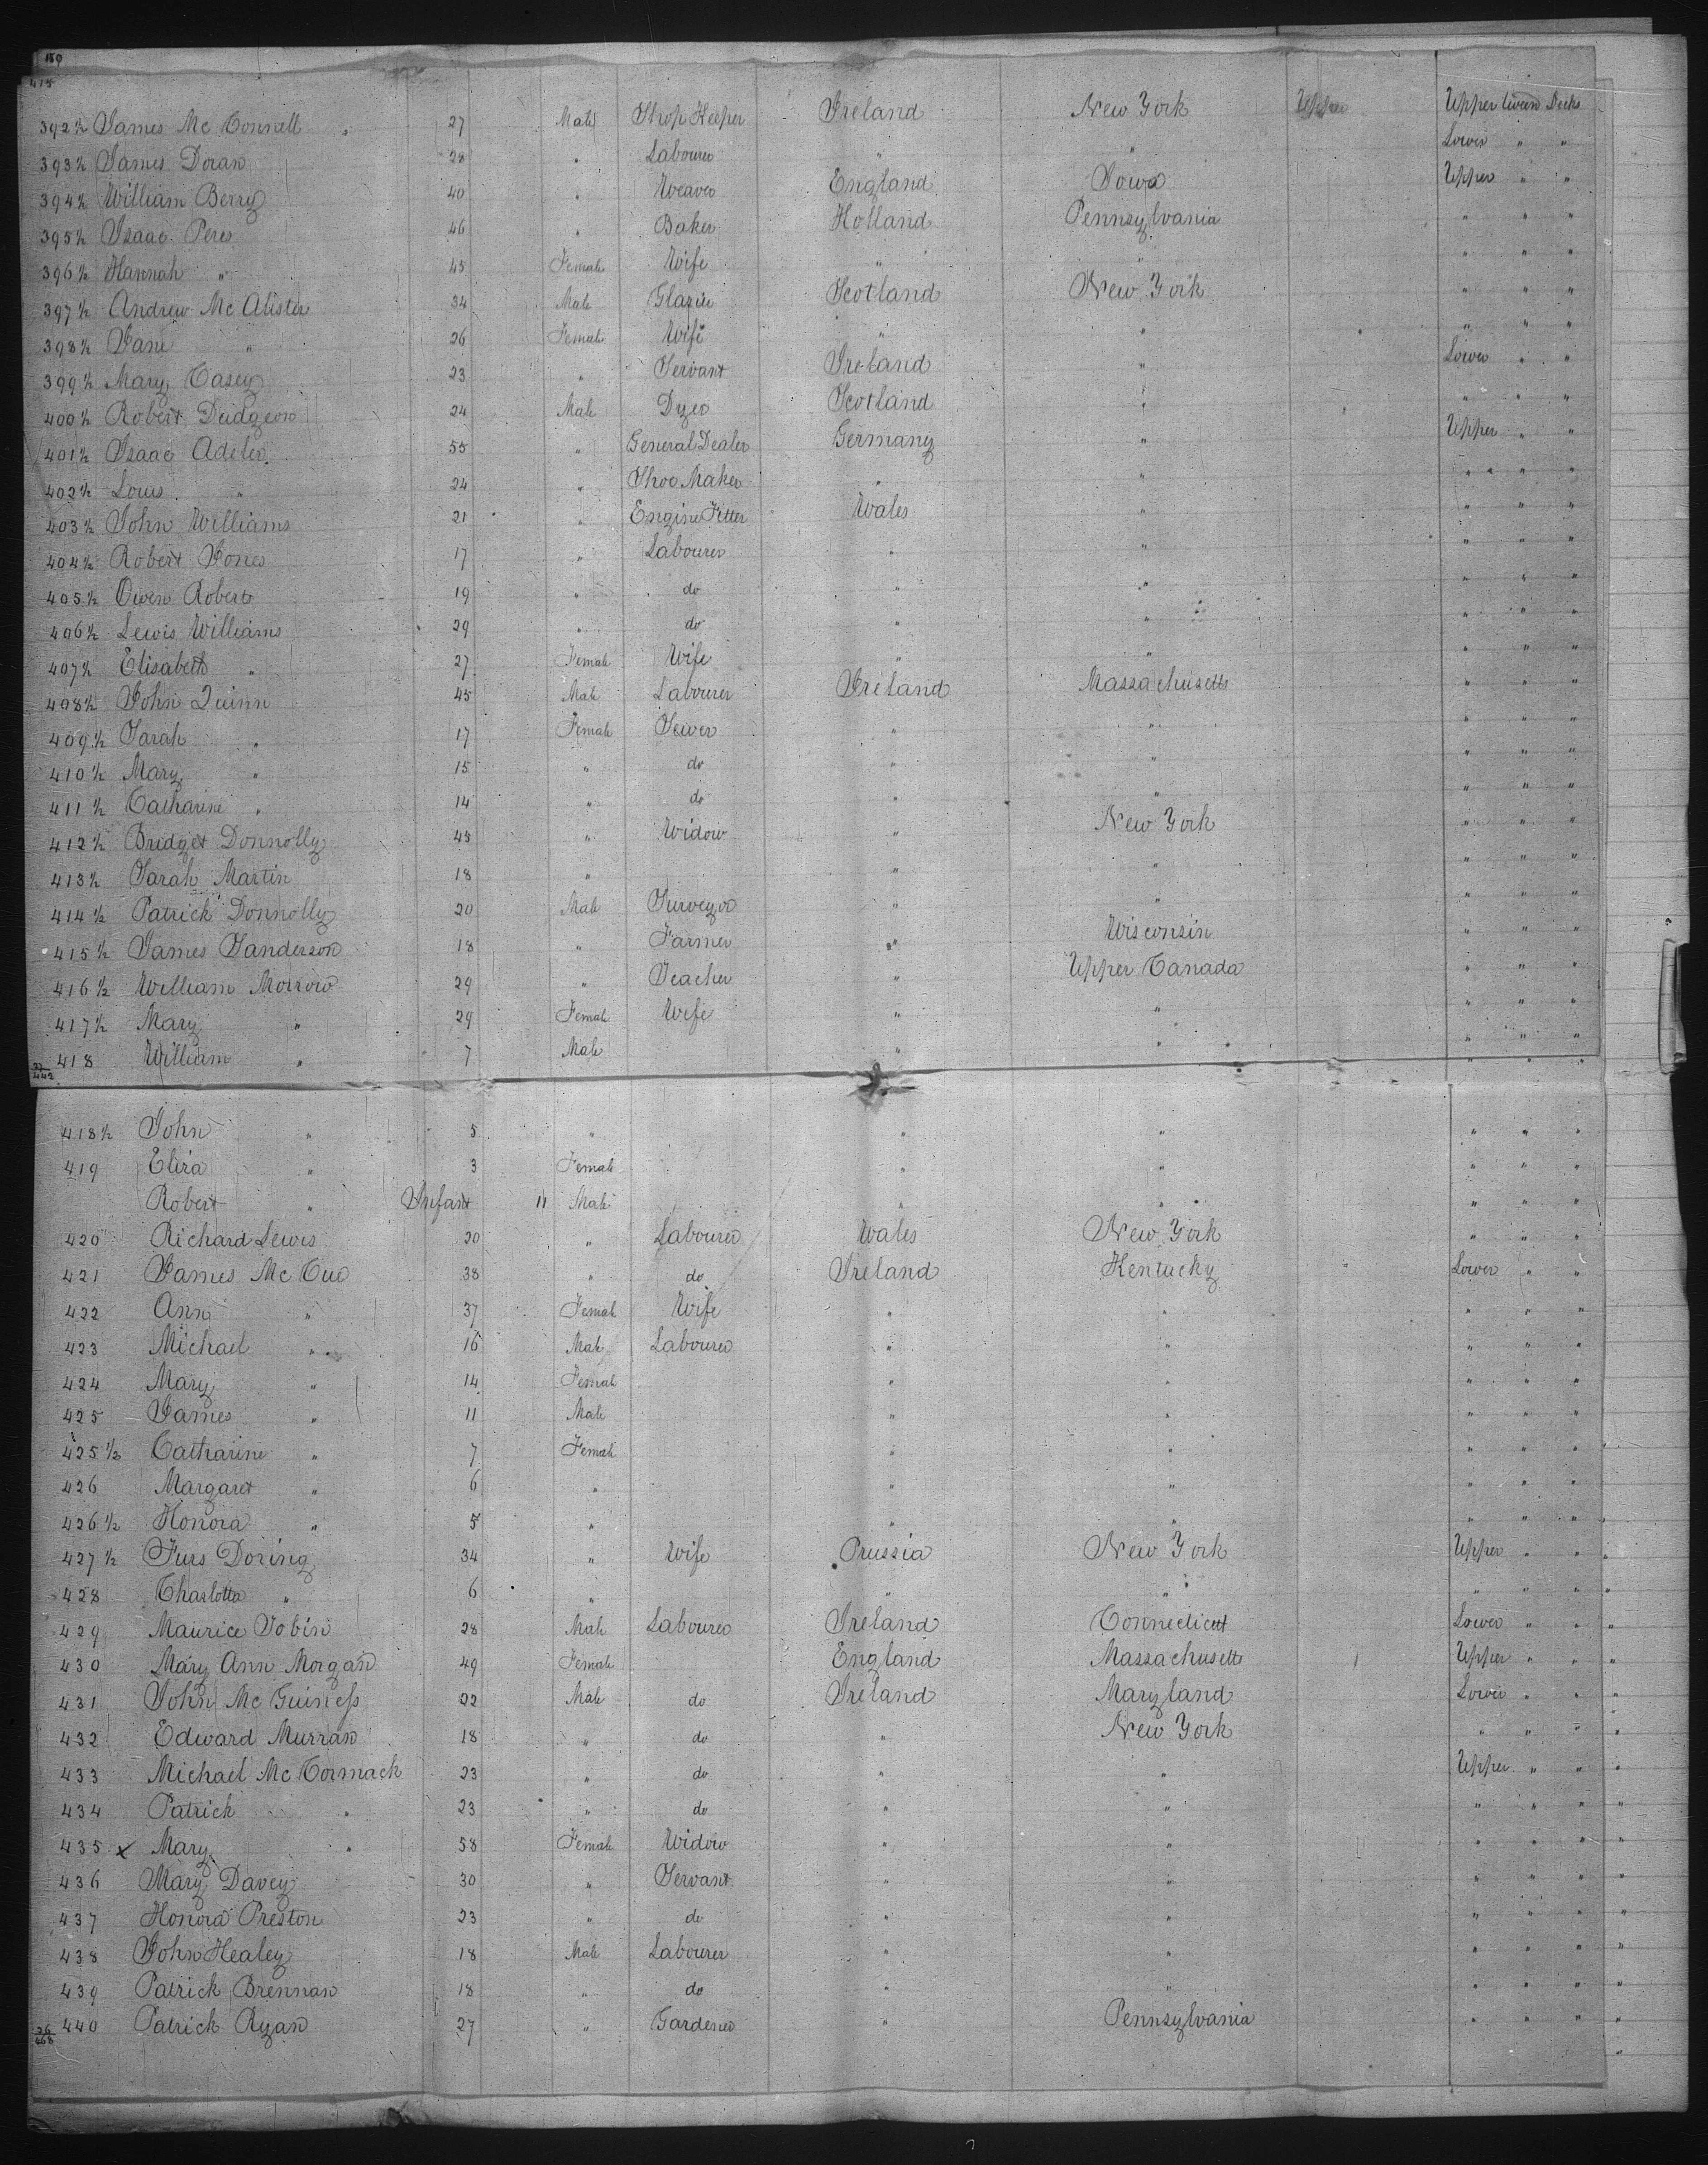 159
415
392½ James Mc Connell " 27 Male Shop Keeper Ireland New York Upper Upper tween Decks
393½ James Doran 28 " Labourer " " Lower " "
394½ William Berry 40 " Weaver England Iowa Upper " "
395½ Isaac Peres 46 " Baker Holland Pennsylvania " " "
396½ Hannah " 45 Female Wife " " " " "
397½ Andrew Mc Alister 34 Male Glazier Scotland New York " " "
398½ Jane " 26 Female Wife " " " " "
399½ Mary Casey 23 " Servant Ireland " Lower " "
400½ Robert Dudgeon 24 Male Dyer Scotland " " " "
401½ Isaac Adeler 55 " General Dealer Germany " Upper " "
402½ Louis " 24 " Shoe Maker " " " " "
403½ John Williams 21 " Engine Fitter Wales " " " "
404½ Robert Jones 17 " Labourer " " " " "
405½ Owen Roberts 19 " do " " " " "
406½ Lewis Williams 29 " do " " " " "
407½ Elisabeth " 27 Female Wife " " " " "
408½ John Quinn 45 Male Labourer Ireland Massachusetts " " "
409½ Sarah " 17 Female Sewer " " " " "
410½ Mary " 15 " do " " " " "
411½ Catharine " 14 " do " " " " "
412½ Bridget Donnolly 45 " Widow " New York " " "
413½ Sarah Martin 18 " " " " " "
414½ Patrick Donnolly 20 Male Surveyor " " " " "
415½ James Sanderson 18 " Farmer " Wisconsin " " "
416½ William Morrow 29 " Teacher " Upper Canada " " "
417½ Mary " 29 Female Wife " " " " "
418 William " 7 Male " " " " "
442
418½ John " 5 " " " " " "
419 Eliza " 3 Female " " " " "
Robert " Infant 11 Male " " " " "
420 Richard Lewis 20 " Labourer Wales New York " " "
421 James Mc Cue 38 " do Ireland Kentucky Lower " "
422 Ann " 37 Female Wife " " " " "
423 Michael " 16 Male Labourer " " " " "
424 Mary " 14 Female " " " " "
425 James " 11 Male " " " " "
425½ Catharine " 7 Female " " " " "
426 Margaret " 6 " " " " " "
426½ Honora " 5 " " " " " "
427½ Furs Doring 34 " Wife Prussia New York Upper " "
428 Charlotta " 6 " " " " " "
429 Maurice Tobin 28 Male Labourer Ireland Connecticut Lower " "
430 Mary Ann Morgan 49 Female England Massachusetts Upper " "
431 John Mc Guiness 22 Male do Ireland Maryland Lower " "
432 Edward Murran 18 " do " New York " " "
433 Michael Mc Cormack 23 " do " " Upper " "
434 Patrick " 23 " do " " " " "
435 x Mary " 58 Female Widow " " " " "
436 Mary Davey 30 " Servant " " " " "
437 Honora Preston 23 " do " " " " "
438 John Healey 18 Male Labourer " " " " "
439 Patrick Brennan 18 " do " " " " "
440 Patrick Ryan 27 " Gardener " Pennsylvania " " "
26
468